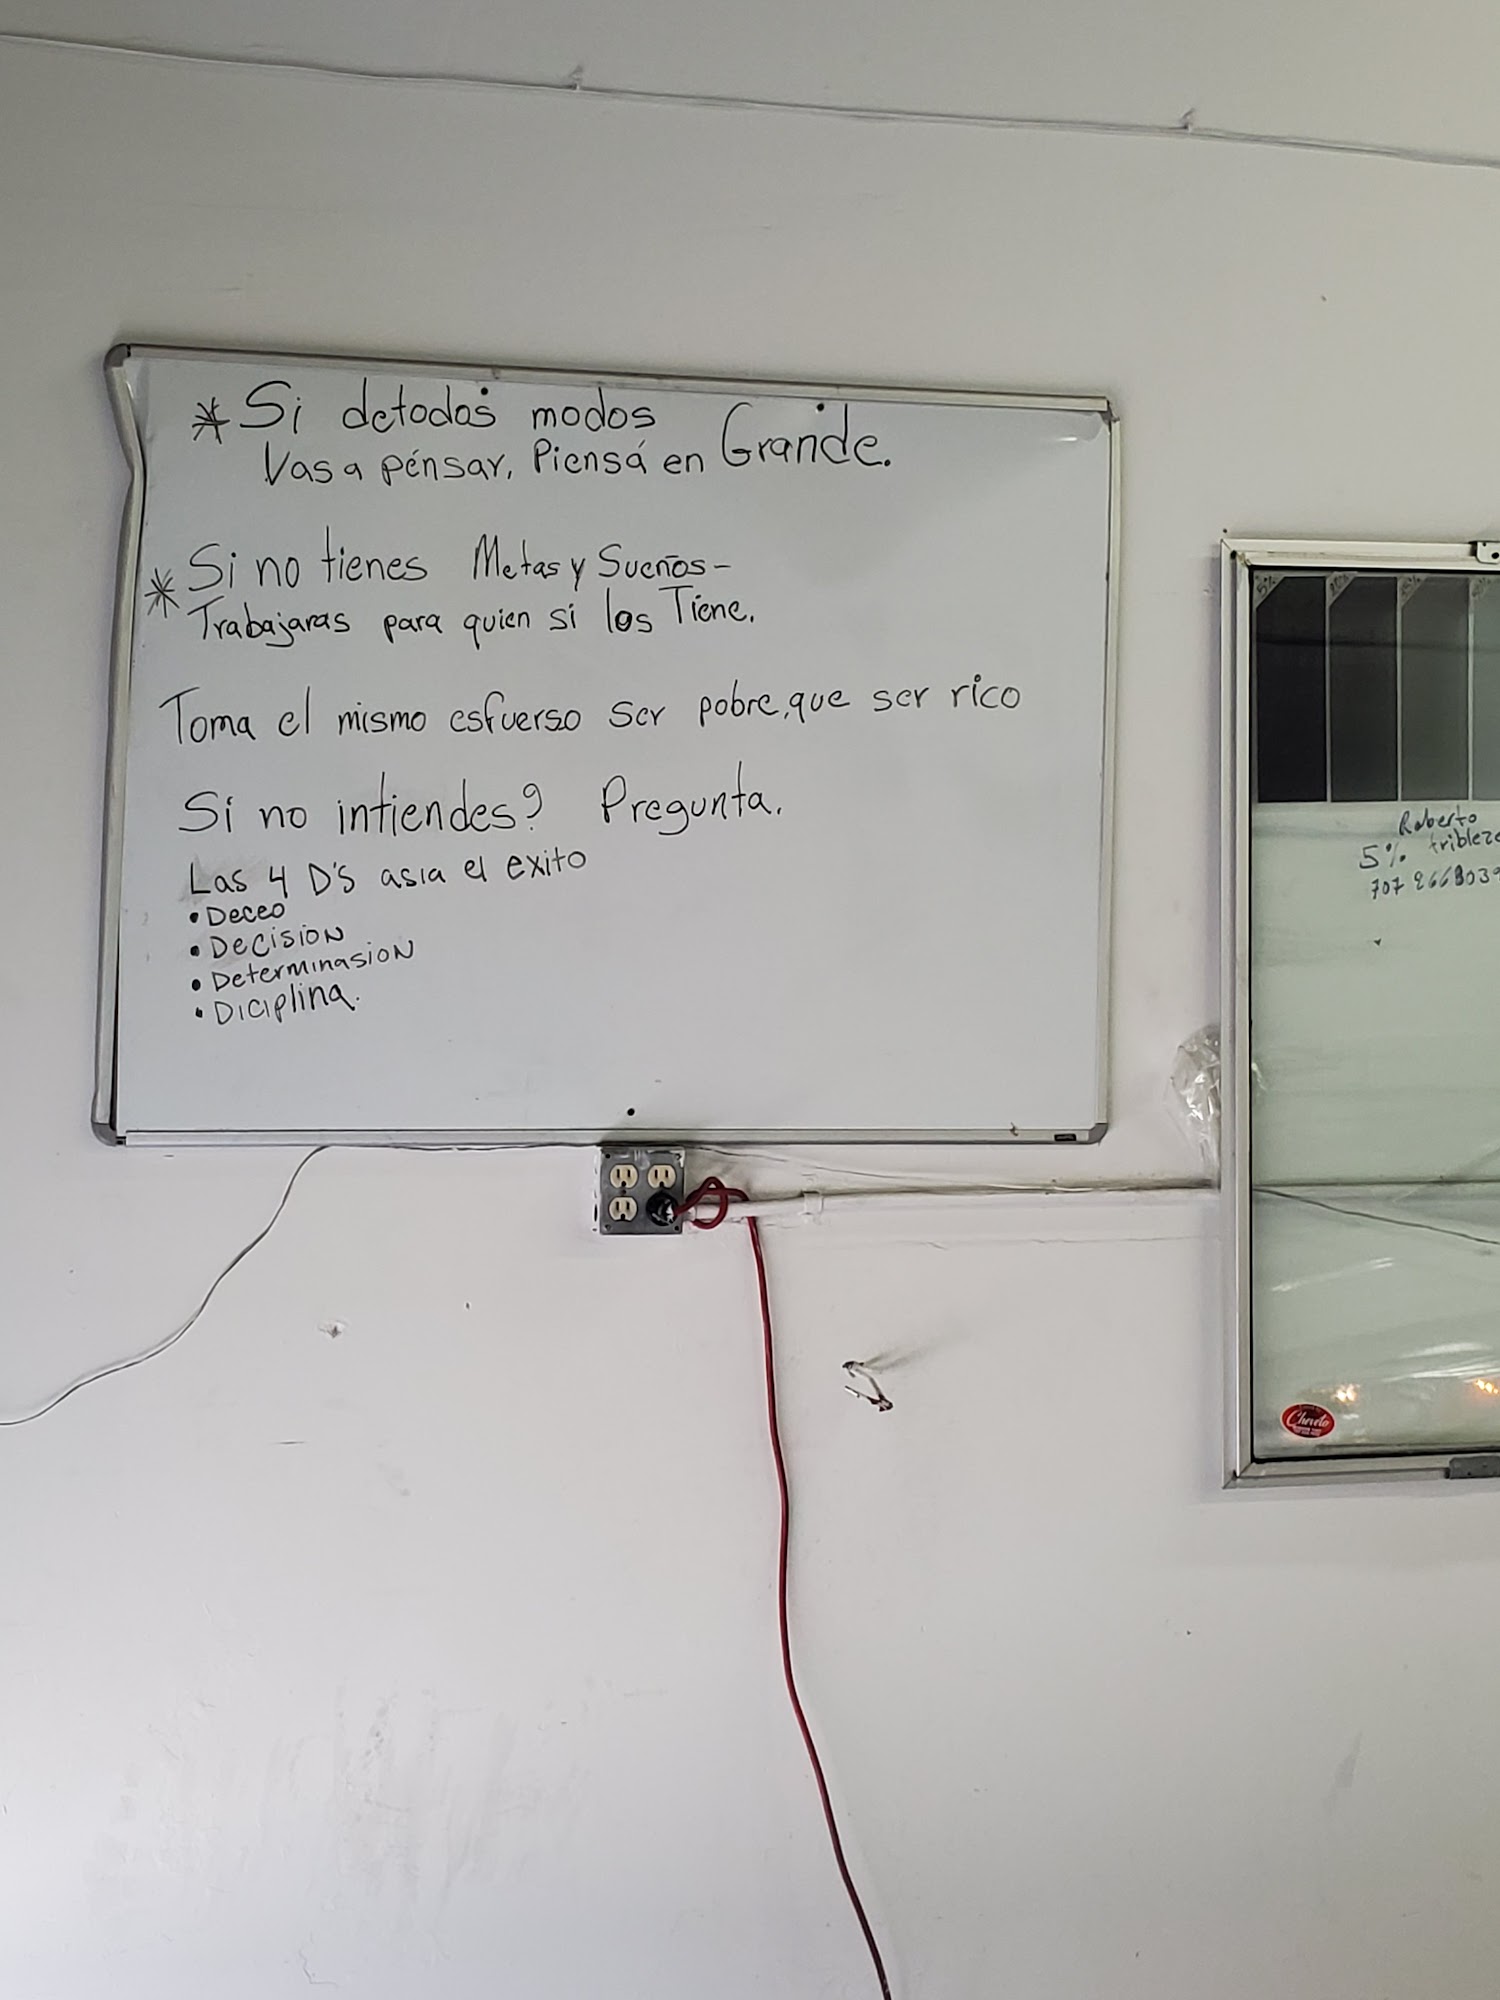 * Si detodos modos
Vas a pénsar, Piensá en Grande.
* Si no tienes Metas y Sueños-
Trabajaras para quien si los Tiene.
Toma el mismo esfuerso ser pobre, que ser rico
Si no intiendes? Pregunta.
Las 4 D's asia el exito
• Deceo
• Decision
• Determinasion
• Diciplina.
5%
Roberto
5%
707
Cheveto